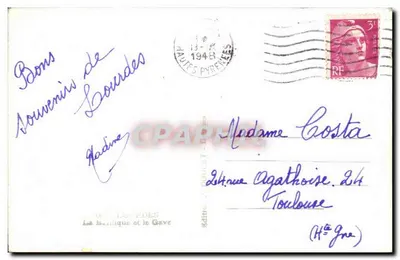 Bons
souvenirs de
Lourdes
Nadine
1948
HAUTES PYRENEES
3F
RF
Madame Costa
24 rue Agathoise. 24
Toulouse
(Hte Gne)
La Basilique et le Gave